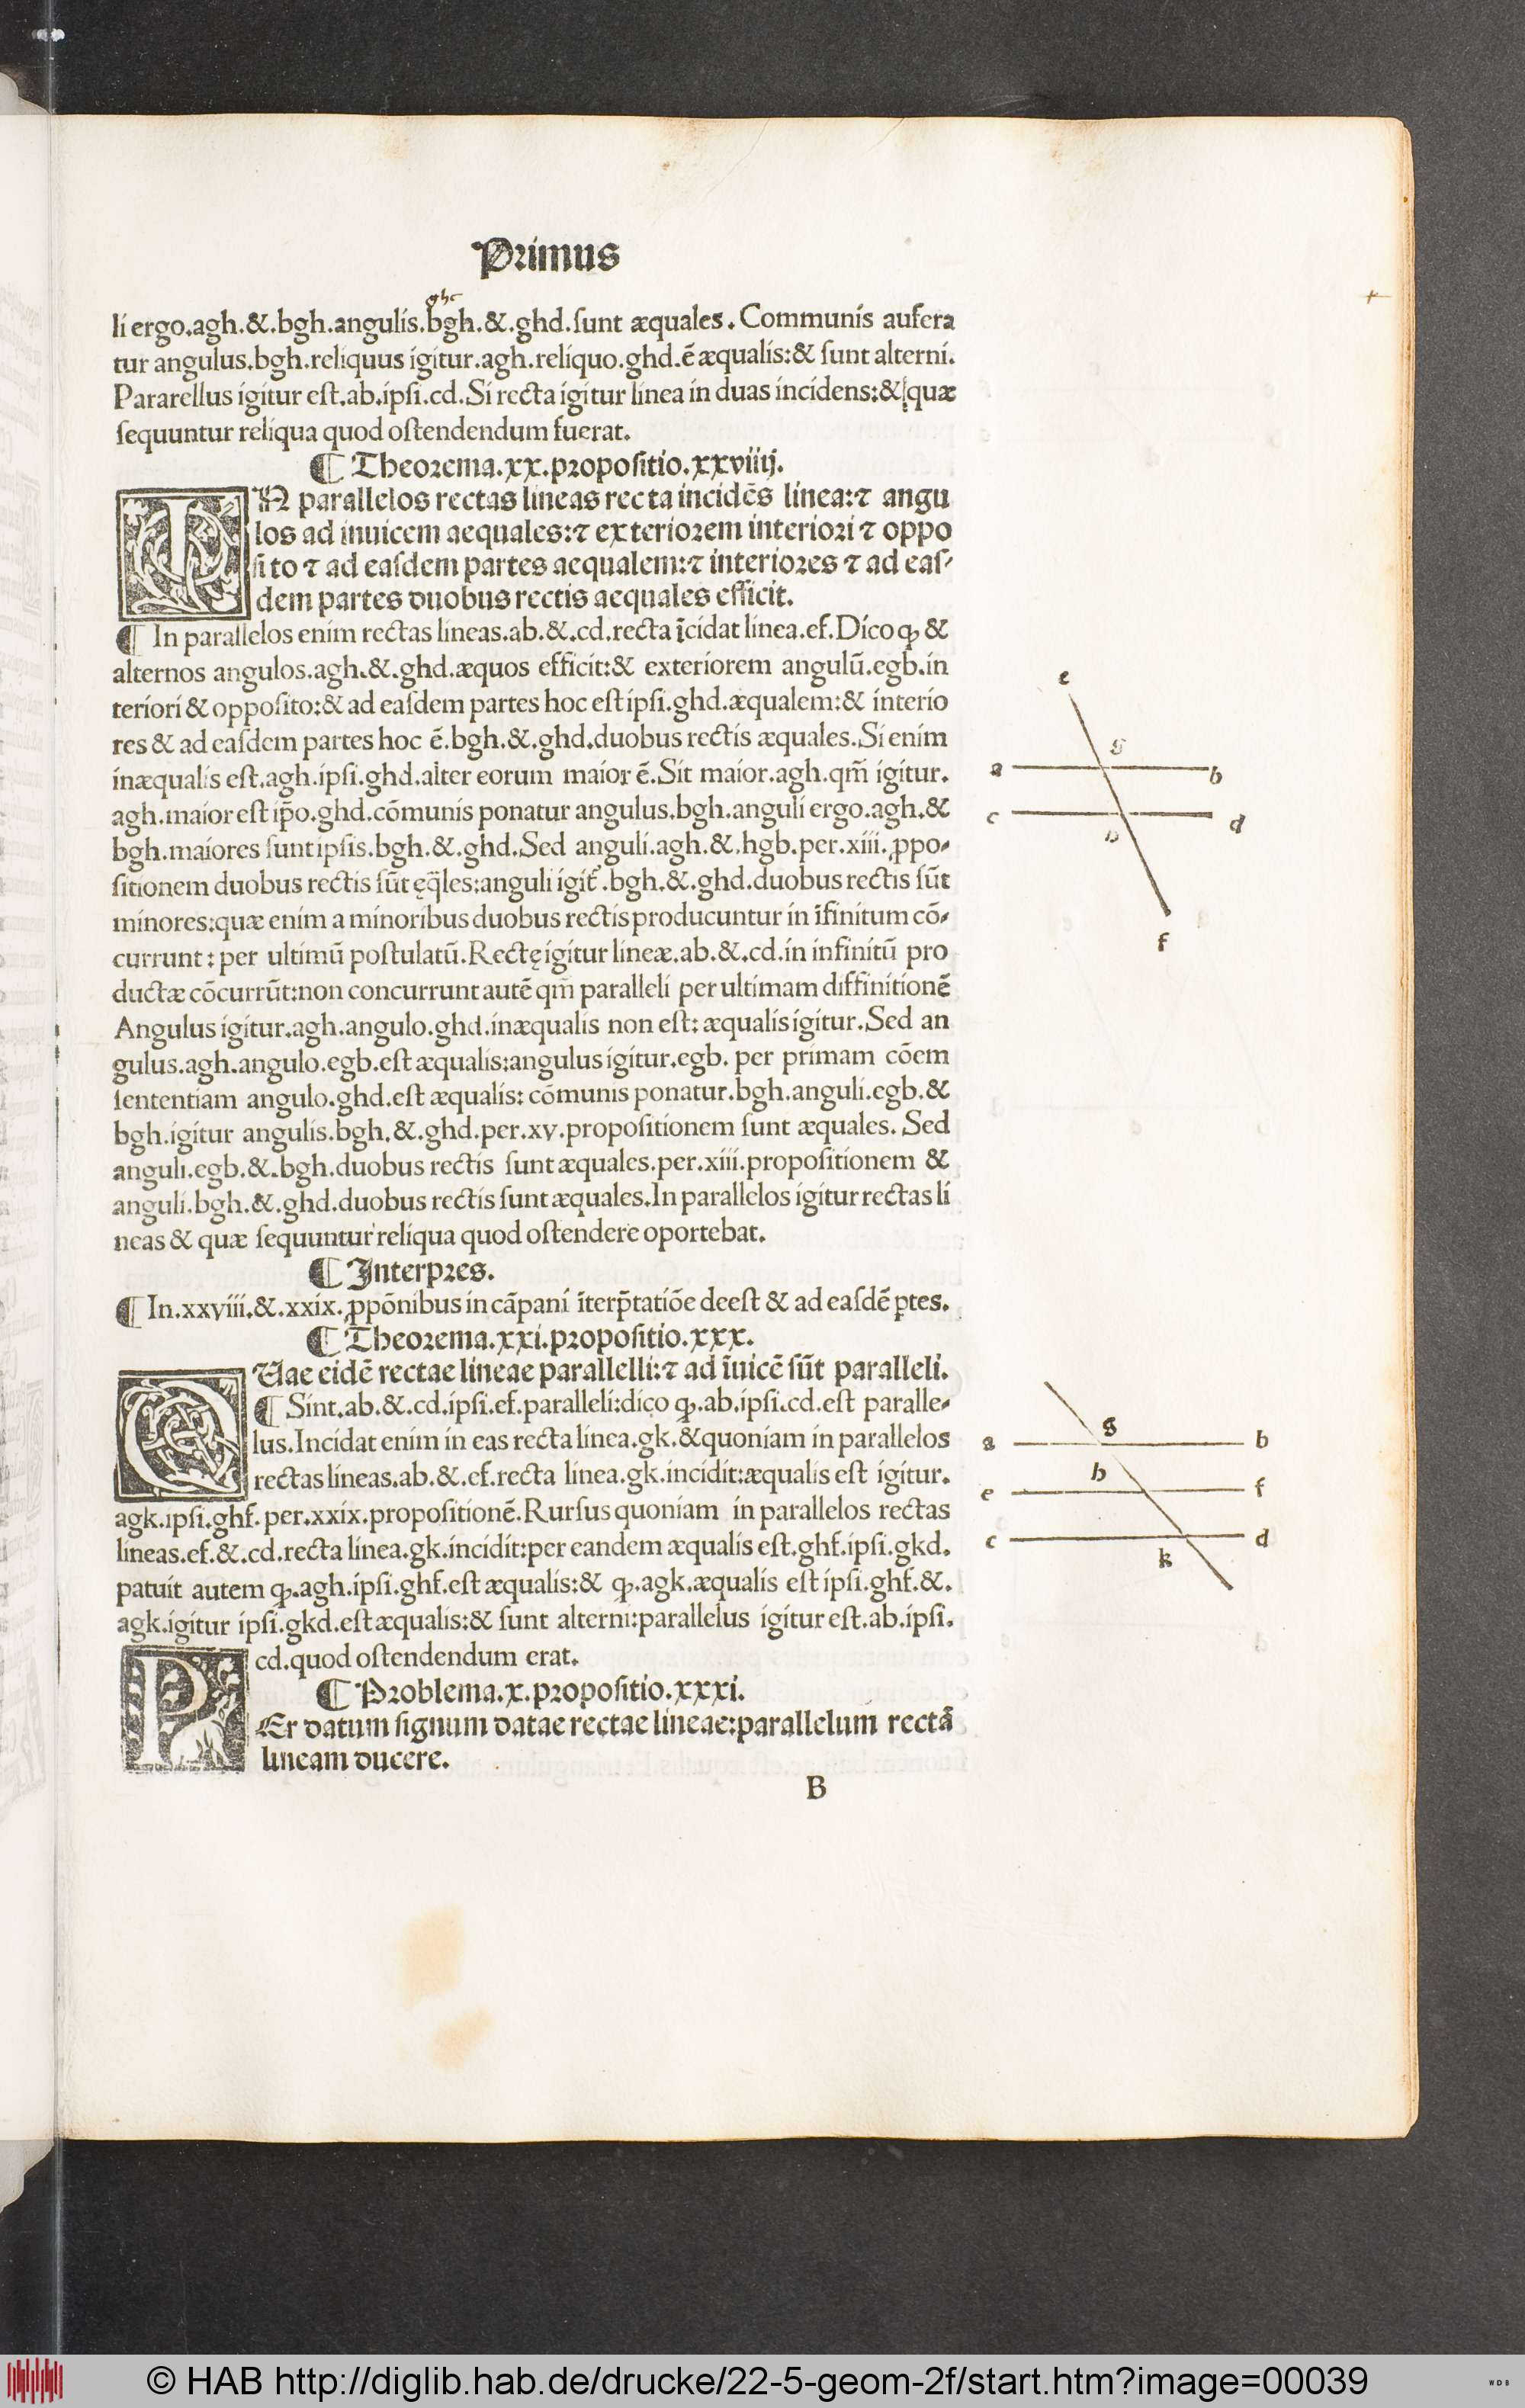 Primus
ghc
li ergo.agh.&.bgh.angulis.bgh.&.ghd.ſunt æquales. Communis aufera
tur angulus.bgh.reliquus igitur.agh.reliquo.ghd.ē æqualis:& ſunt alterni.
Pararellus igitur eſt.ab.ipſi.cd.Si recta igitur linea in duas incidens:& quæ
ſequuntur reliqua quod oſtendendum fuerat.
¶ Theorema.xx.propoſitio.xxviiij.
IN parallelos rectas lineas recta incidēs linea:⁊ angu
los ad inuicem aequales:⁊ exteriorem interiori ⁊ oppo
ſito ⁊ ad eaſdem partes aequalem:⁊ interiores ⁊ ad eaſ-
dem partes duobus rectis aequales efficit.
¶ In parallelos enim rectas lineas.ab.&.cd.recta īcidat linea.ef.Dico ꝙ &
alternos angulos.agh.&.ghd.æquos efficit:& exteriorem angulū.egb.in
teriori & oppoſito:& ad eaſdem partes hoc eſt ipſi.ghd.æqualem:& interio
res & ad eaſdem partes hoc ē.bgh.&.ghd.duobus rectis æquales.Si enim
inæqualis eſt.agh.ipſi.ghd.alter eorum maior ē.Sit maior.agh.qm̄ igitur.
agh.maior eſt ip̄o.ghd.cōmunis ponatur angulus.bgh.anguli ergo.agh.&
bgh.maiores ſunt ipſis.bgh.&.ghd.Sed anguli.agh.&.hgb.per.xiii.ꝓpo-
ſitionem duobus rectis ſūt ęq̄les:anguli igit̄.bgh.&.ghd.duobus rectis ſūt
minores:quæ enim a minoribus duobus rectis producuntur in īfinitum cō-
currunt: per ultimū poſtulatū.Rectę igitur lineæ.ab.&.cd.in infinitū pro
ductæ cōcurrūt:non concurrunt autē qm̄ paralleli per ultimam diffinitionē
Angulus igitur.agh.angulo.ghd.inæqualis non eſt: æqualis igitur.Sed an
gulus.agh.angulo.egb.eſt æqualis:angulus igitur.egb. per primam cōem
ſententiam angulo.ghd.eſt æqualis: cōmunis ponatur.bgh.anguli.egb.&
bgh.igitur angulis.bgh.&.ghd.per.xv.propoſitionem ſunt æquales. Sed
anguli.egb.&.bgh.duobus rectis ſunt æquales.per.xiii.propoſitionem &
anguli.bgh.&.ghd.duobus rectis ſunt æquales.In parallelos igitur rectas li
neas & quæ ſequuntur reliqua quod oſtendere oportebat.
¶ Interpres.
¶ In.xxviii.&.xxix.ꝓpōnibus in cāpani īterp̄tatiōe deeſt & ad eaſdē ꝑtes.
¶ Theorema.xxi.propoſitio.xxx.
QUae eidē rectae lineae parallelli:⁊ ad īuicē ſūt paralleli.
¶ Sint.ab.&.cd.ipſi.ef.paralleli:dico ꝙ.ab.ipſi.cd.eſt paralle-
lus.Incidat enim in eas recta linea.gk.&quoniam in parallelos
rectas lineas.ab.&.ef.recta linea.gk.incidit:æqualis eſt igitur.
agk.ipſi.ghf. per.xxix.propoſitionē.Rurſus quoniam in parallelos rectas
lineas.ef.&.cd.recta linea.gk.incidit:per eandem æqualis eſt.ghf.ipſi.gkd.
patuit autem ꝙ.agh.ipſi.ghf.eſt æqualis:& ꝙ.agk.æqualis eſt ipſi.ghf.&.
agk.igitur ipſi.gkd.eſt æqualis:& ſunt alterni:parallelus igitur eſt.ab.ipſi.
cd.quod oſtendendum erat.
¶ Problema.x.propoſitio.xxxi.
PEr datum ſignum datae rectae lineae:parallelum rectā
lineam ducere.
B
e
g
a
b
c
d
h
f
g
a
b
h
e
f
c
d
k
© HAB http://diglib.hab.de/drucke/22-5-geom-2f/start.htm?image=00039
WDB